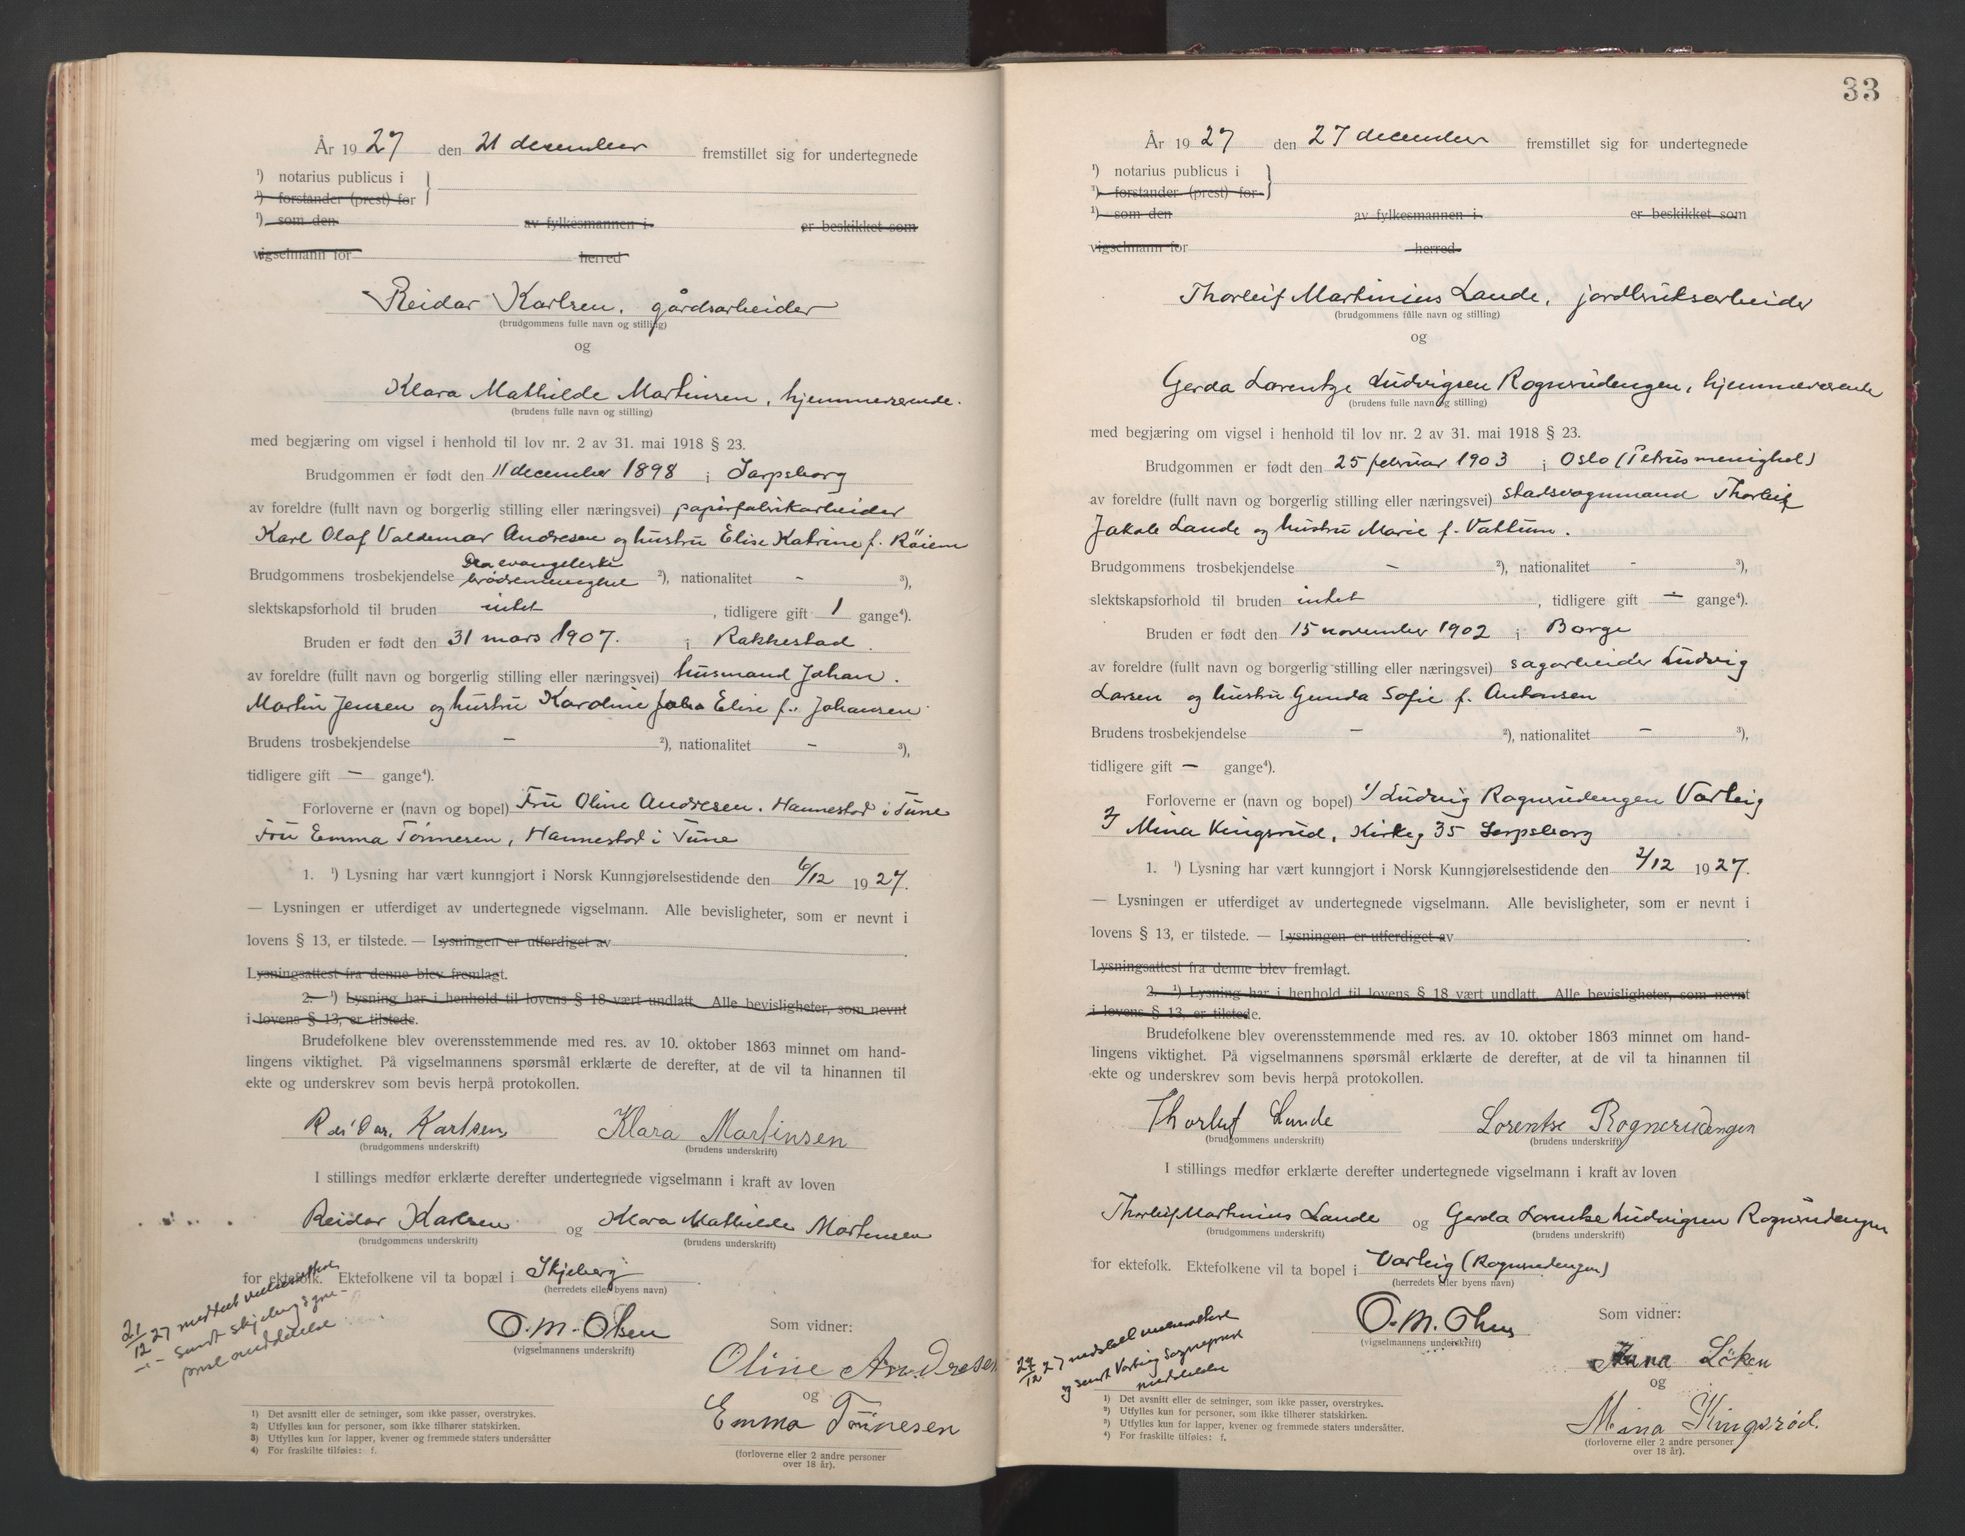 År 1927 den 21 desember fremstillet sig for undertegnede
¹) notarius publicus i
¹) forstander (prest) for
¹) som den av fylkesmannen i er beskikket som
vigselmann for herred
Reidar Karlsen, gårdsarbeider
(brudgommens fulle navn og stilling)
og
Klara Mathilde Martinsen, hjemmeværende.
(brudens fulle navn og stilling)
med begjæring om vigsel i henhold til lov nr. 2 av 31. mai 1918 § 23.
Brudgommen er født den 11 december 1898 i Sarpsborg
av foreldre (fullt navn og borgerlig stilling eller næringsvei) papirfabrikarbeider
Karl Olaf Valdemar Andresen og hustru Elise Katrine f. Røiem
Den evangeliske
Brudgommens trosbekjendelse brødremenighet ²), nationalitet - ³),
slektskapsforhold til bruden intet, tidligere gift 1 gange⁴).
Bruden er født den 31 mars 1907. i Rakkestad.
av foreldre (fullt navn og borgerlig stilling eller næringsvei) husmand Johan
Martin Jensen og hustru Karoline Elise f. Johansen
Brudens trosbekjendelse - ²), nationalitet - ³),
tidligere gift - gange⁴).
Forloverne er (navn og bopel) Fru Oline Andresen. Hannestad i Tune
Fru Emma Tönnesen, Hannestad i Tune
1. ¹) Lysning har vært kunngjort i Norsk Kunngjørelsestidende den 6/12 1927.
— Lysningen er utferdiget av undertegnede vigselmann. Alle bevisligheter, som er nevnt i
lovens § 13, er tilstede. — Lysningen er utferdiget av
Lysningsattest fra denne blev fremlagt.
2. ¹) Lysning har i henhold til lovens § 18 vært undlatt. Alle bevisligheter, som nevnt
i lovens § 13, er tilstede.
Brudefolkene blev overensstemmende med res. av 10. oktober 1863 minnet om hand-
lingens viktighet. På vigselmannens spørsmål erklærte de derefter, at de vil ta hinannen til
ekte og underskrev som bevis herpå protokollen.
Reidar Karlsen Klara Martinsen
(brudgommens underskrift) (brudens underskrift)
I stillings medfør erklærte derefter undertegnede vigselmann i kraft av loven
Reidar Karlsen og Klara Mathilde Martinsen
(brudgommens underskrift) (brudens underskrift)
for ektefolk. Ektefolkene vil ta bopæl i Skjeberg
(herredets eller byens navn)
21/12 27 meddelt vielsesattest
-"- Sendt Skjeberg sogne-
prest meddelelse
O. M. Olsen Som vidner:
(vigselmannens underskrift)
Oline Andresen
og
Emma Tönnesen
(forloverne eller 2 andre personer
over 18 år).
1) Det avsnitt eller de setninger, som ikke passer, overstrykes.
2) Utfylles kun for personer, som ikke tilhører statskirken.
3) Utfylles kun for lapper, kvener og fremmede staters undersåtter
4) For fraskilte tilføies: f.
33
År 1927 den 27 december fremstillet sig for undertegnede
¹) notarius publicus i
¹) forstander (prest) for
¹) som den av fylkesmannen i er beskikket som
vigselmann for herred
Thorleif Martinius Lande, jordbruksarbeider
(brudgommens fulle navn og stilling)
og
Gerda Lorentze Ludvigsen Rognerudengen, hjemmeværende
(brudens fulle navn og stilling)
med begjæring om vigsel i henhold til lov nr. 2 av 31. mai 1918 § 23.
Brudgommen er født den 25 februar 1903 i Oslo (Petrus menighet)
av foreldre (fullt navn og borgerlig stilling eller næringsvei) stadsvognmand Thorleif
Jakob Lande og hustru Marie f. Vattum.
Brudgommens trosbekjendelse - ²), nationalitet - ³),
slektskapsforhold til bruden intet, tidligere gift - gange⁴).
Bruden er født den 15 november 1902 i Borge
av foreldre (fullt navn og borgerlig stilling eller næringsvei) sagarbeider Ludvig
Larsen og hustru Gunda Sofie f. Antonsen
Brudens trosbekjendelse - ²), nationalitet - ³),
tidligere gift - gange⁴).
Forloverne er (navn og bopel) 1/ Ludvig Rognerudengen Varteig
2/ Mina Kingsrud, Kirkeg 35 Sarpsborg
1. ¹) Lysning har vært kunngjort i Norsk Kunngjørelsestidende den 2/12 1927.
— Lysningen er utferdiget av undertegnede vigselmann. Alle bevisligheter, som er nevnt i
lovens § 13, er tilstede. — Lysningen er utferdiget av
Lysningsattest fra denne blev fremlagt.
2. ¹) Lysning har i henhold til lovens § 18 vært undlatt. Alle bevisligheter, som nevnt
i lovens § 13, er tilstede.
Brudefolkene blev overensstemmende med res. av 10. oktober 1863 minnet om hand-
lingens viktighet. På vigselmannens spørsmål erklærte de derefter, at de vil ta hinannen til
ekte og underskrev som bevis herpå protokollen.
Thorleif Lande Lorentse Rognerudengen
(brudgommens underskrift) (brudens underskrift)
I stillings medfør erklærte derefter undertegnede vigselmann i kraft av loven
Thorleif Martinius Lande og Gerda Lorentze Ludvigsen Rognerudengen
(brudgommens underskrift) (brudens underskrift)
for ektefolk. Ektefolkene vil ta bopel i Varteig (Rognerudengen)
(herredets eller byens navn)
27/12 27 meddelt vielsesattest
og sendt Varteig Sogneprest
meddelelse
O. M. Olsen Som vidner:
(vigselmannens underskrift)
Anna Löken
og
Mina Kingsrød.
(forloverne eller 2 andre personer
over 18 år).
¹) Det avsnitt eller de setninger, som ikke passer, overstrykes.
²) Utfylles kun for personer, som ikke tilhører statskirken.
³) Utfylles kun for lapper, kvener og fremmede staters undersåtter.
⁴) For fraskilte tilføies: f.